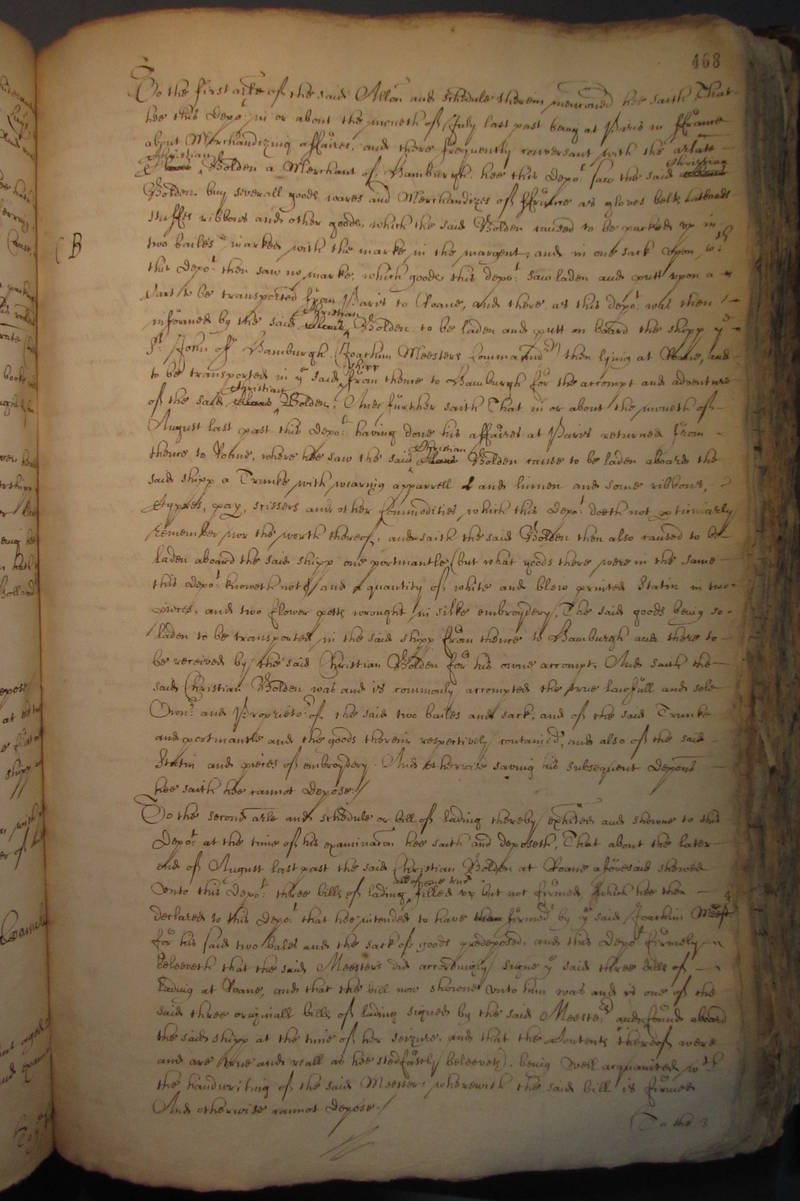 468
To the first arłe of the said Allon and schedule therein menconed hee saith That
hee this Depot in or about the moneth of July last past being at Paris in ffrance
about Merchandizing affaires, and there frequently conversant with the arlate
Christian Bolden a Merchant of Hamburgh. hee this Depot saw the said Christian
Bolden buy severall goods wares and Merchandizes of ffrance as gloves belts hatbands
stuffes ribbons and other goods, which the said Bolden caused to be packed up in
two bailes marked with the marke in the margent, and in one sack upon wch
B
this Depot then saw no marke, which goods this depot saw laden and putt upon a
Cart to be transported from Paris to Roane, and there as this depot was then
informed by the said Christian Bolden to be laden and putt on board the shipp ye
St John of Hamburgh (Joachim Meesters Commander) then lying at Roane, and
to be transported in ye said shipp from thence to Hamburgh for the accompt and adventure
of the said Christian Bolden, And further saith That in or about the moneth of
August last past this Depot having done his affaires at Paris returned from
thence to Roane, where hee saw the said Christian Bolden cause to be laden aboard the
said shipp a Trunke with wearing apparrell and linnen and some ribbons,
scissers and other Commodities which this Depot doeth not perticularly
remember nor the worth thereof, and saith the said Bolden then also caused to be
laden aboard the said shipp one portmantle, (but what goods there were in the same
this depot knoweth not) and a quantity of white and blew printed Statin in two
peeces, and two flower potts wrought in silke embroydery, The said goods being so
laden to be transported in the said shipp from thence to Hamburgh and there to
be received by the said Christian Bolden for his owne accompt. And saith the
said Christian Bolden was and is commonly accompted the true lawfull and sole
Owner and Proprietor of the said two bailes and sack, and of the said Trunke
and portmantle and the goods therein respectively contained, and also of the said
Statin and peeces of embroydery. And otherwise saving his subsequent deposns
hee saith hee cannot depose./
To the second arle and schedule or bill of lading thereby exhited and showne to this
Depot at the time of his examinacon hee saith and deposeth, That about the later
end of August last past the said Christian Bolden at Roane aforesaid shewed
unto this Depot three bills of lading all of one tenor filled up but not firmed, which hee then
declared to this Depot that hee intended to have firmed by ye said Joachim Meesters
for his said two bales and the sack of goods predeposed, and this Depot firmely
beleeveth that the said Meesters did accordingly signe ye said three bills of
lading at Roane, and that the bill now showne unto him was and is one of the
said three originall bills of lading signed by the said Meesters and found aboard
the said shipp at the time of her seizure, and that the Contents thereof were
and are true and reall as hee stedfastly beleeveth, being well acquainted wth
the handwriting of the said Meesters wherewith the said bill is firmed
And otherwise cannot depose./
To the 3